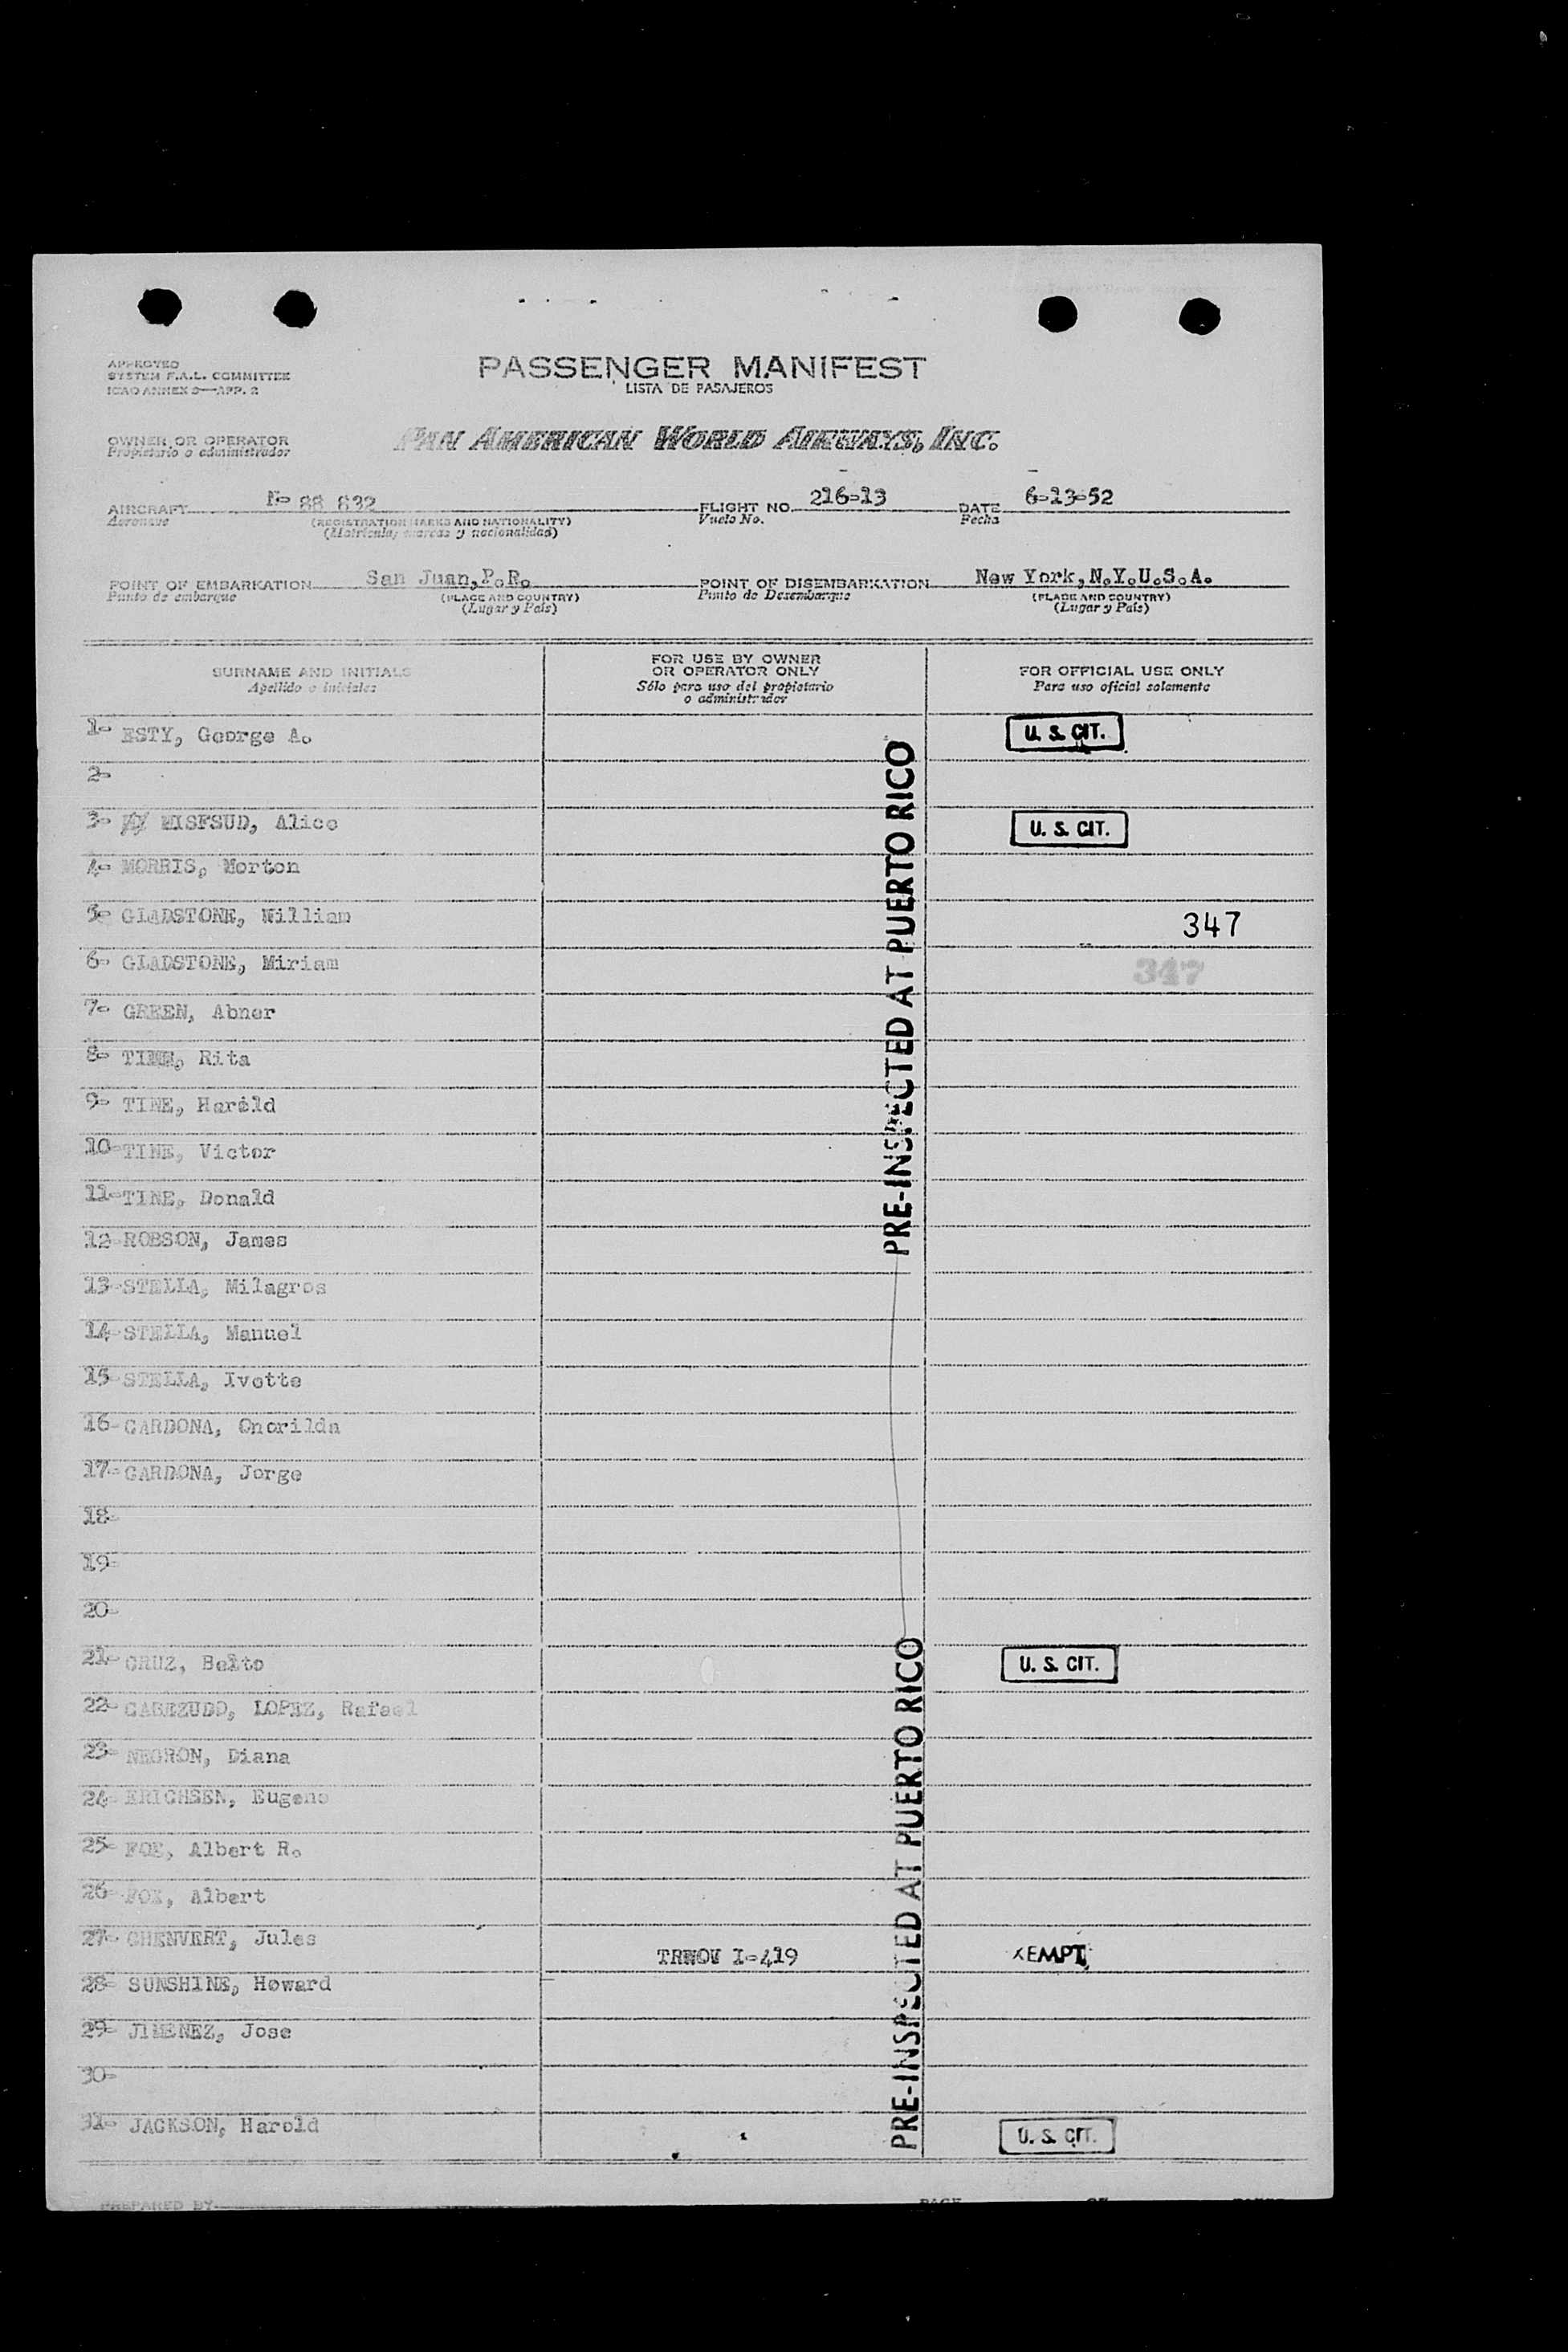 APPROVED
SYSTEM F.A.L. COMMITTEE
ICAO ANNEX 9—APP. 2
PASSENGER MANIFEST
LISTA DE PASAJEROS
OWNER OR OPERATOR
Propietario o administrador
PAN AMERICAN WORLD AIRWAYS, INC.
AIRCRAFT N- 88 832
Aeronave
(REGISTRATION MARKS AND NATIONALITY)
(Matricula, marcas y nacionalidad)
FLIGHT NO. 216-13
Vuelo No.
DATE 6-13-52
Fecha
POINT OF EMBARKATION San Juan,P.R.
Punto de embarque
(PLACE AND COUNTRY)
(Lugar y País)
POINT OF DISEMBARKATION New York,N.Y.U.S.A.
Punto de Desembarque
(PLACE AND COUNTRY)
(Lugar y País)
SURNAME AND INITIALS
Apellido e iniciales
FOR USE BY OWNER
OR OPERATOR ONLY
Sólo para uso del propietario
o administrador
FOR OFFICIAL USE ONLY
Para uso oficial solamente
1- ESTY, George A. U. S. CIT.
2-
3- MISFSUD, Alice U. S. CIT.
4- MORRIS, Morton
5- GLADSTONE, William 347
6- GLADSTONE, Miriam 347
7- GREEN, Abner
8- TINE, Rita
9- TINE, Harold
10-TINE, Victor
11-TINE, Donald
12-ROBSON, James
13-STELLA, Milagros
14-STELLA, Manuel
15-STELLA, Ivette
16-CARDONA, Onorilda
17-CARDONA, Jorge
18-
19-
20-
21- CRUZ, Belto U. S. CIT.
22- CABEZUDO, LOPEZ, Rafael
23- NEGRON, Diana
24- ERICHSEN, Eugene
25- FOX, Albert R.
26- FOX, Albert
27- CHENVERT, Jules TRWOV I-419 XEMPT
28- SUNSHINE, Howard
29- JIMENEZ, Jose
30-
31- JACKSON, Harold U. S. CIT.
PRE-INSPECTED AT PUERTO RICO
PRE-INSPECTED AT PUERTO RICO
PREPARED BY